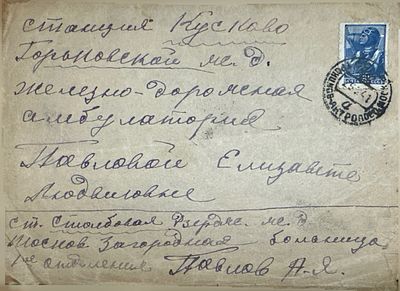 станция Кусково
Горьковской ж. д.
Железно-дорожная
амбулатория
Павловой Елизавете
Людвиговне
ст. Столбовая Дзержс. ж. д.
Москов. Загородная больница
отделение Павлов А. Я.